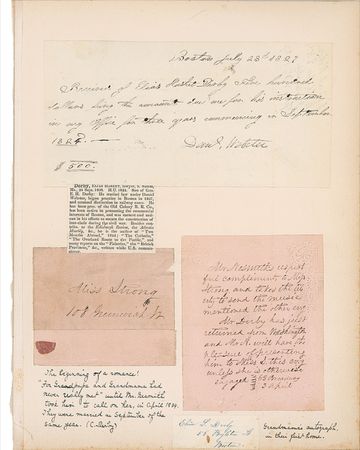 Boston July 28th 1827
Received of Elias Hasket Derby Five hundred
dollars being the amount due me for his instruction
in my office for three years commencing in September
1824.
Danl. Webster
$500.
Derby, ELIAS HASKET, lawyer, b. Salem,
Ms., 24 Sep. 1803. H.U. 1824. Son of Gen.
E. H. Derby. He studied law under Daniel
Webster, began practice in Boston in 1827,
and attained distinction in railway cases. He
has been pres. of the Old Colony R. R. Co.,
has been active in promoting the commercial
interests of Boston, and was earnest and zeal-
ous in his efforts to secure the construction of
iron-clads during the civil war. Besides contribs.
to the Edinburgh Review, the Atlantic
Monthly, &c., he is the author of "Two
Months Abroad," 1844; "The Catholic,"
"The Overland Route to the Pacific," and
many reports on the "Fisheries," the "British
Provinces," &c., written while U.S. commis-
sioner.
Miss Strong
108 Greenwich St
Mr. Nesmith's respect
ful compliments to Miss
Strong and takes the lib
erty to send the music
mentioned the other eve
Mr Derby has just
returned from Washington
and Mr N. will have the
pleasure of presenting
him to Miss S. this eve
unless she is otherwise
engaged
3 April
The beginning of a romance!
"For Grandpapa and Grandmama had
never really met" until Mr. Nesmith
took him to call on her, in April 1834.
They were married in September of the
same year. (C. Derby)
Elias H. Derby
Boston
Grandmama's autograph,
in their first home.